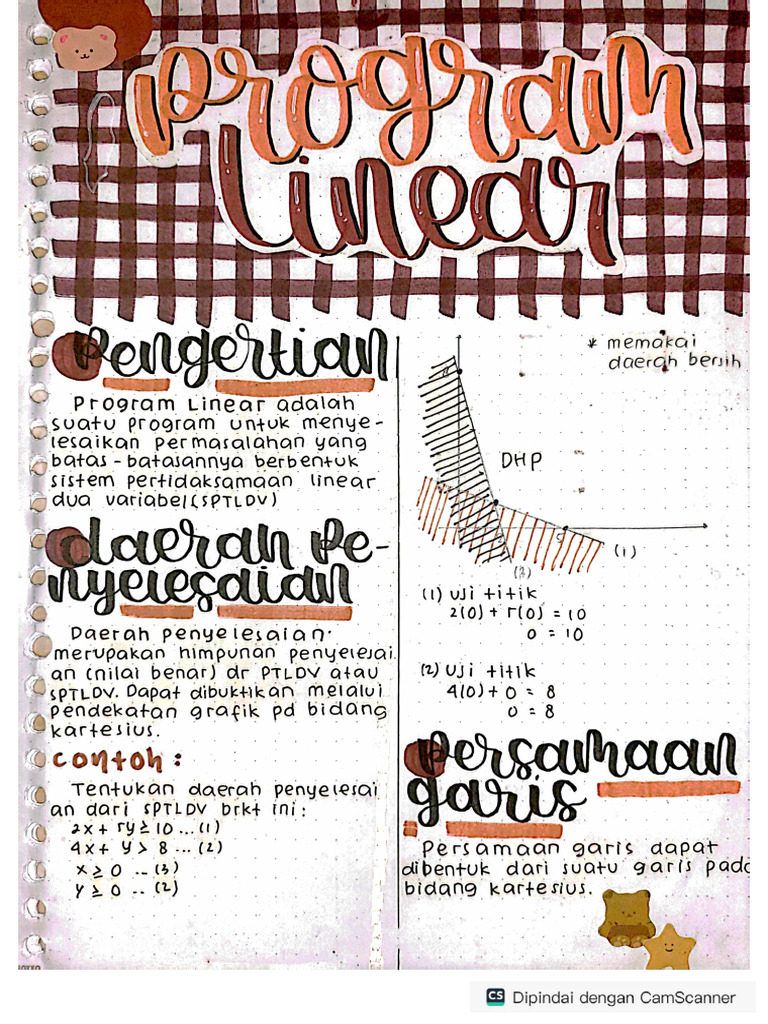 Program
Linear
Pengertian
Program Linear adalah
suatu program untuk menye-
lesaikan permasalahan yang
batas-batasannya berbentuk
sistem pertidaksamaan linear
dua variabel (SPTLDV)
daerah Pe-
nyelesaian
Daerah penyelesaian
merupakan himpunan penyelesai
an (nilai benar) dr PTLDV atau
SPTLDV. Dapat dibuktikan melalui
pendekatan grafik pd bidang
kartesius.
contoh:
Tentukan daerah penyelesai
an dari SPTLDV brkt ini:
2x + 5y ≥ 10 ... (1)
4x + y > 8 ... (2)
x ≥ 0 ... (3)
y ≥ 0 .. (2)
* memakai
daerah bersih
8
DHP
5
(1)
(2)
(1) uji titik
2(0) + 5(0) = 10
0 = 10
(2) uji titik
4(0) + 0 = 8
0 = 8
persamaan
garis
Persamaan garis dapat
dibentuk dari suatu garis pada
bidang kartesius.
CS Dipindai dengan CamScanner